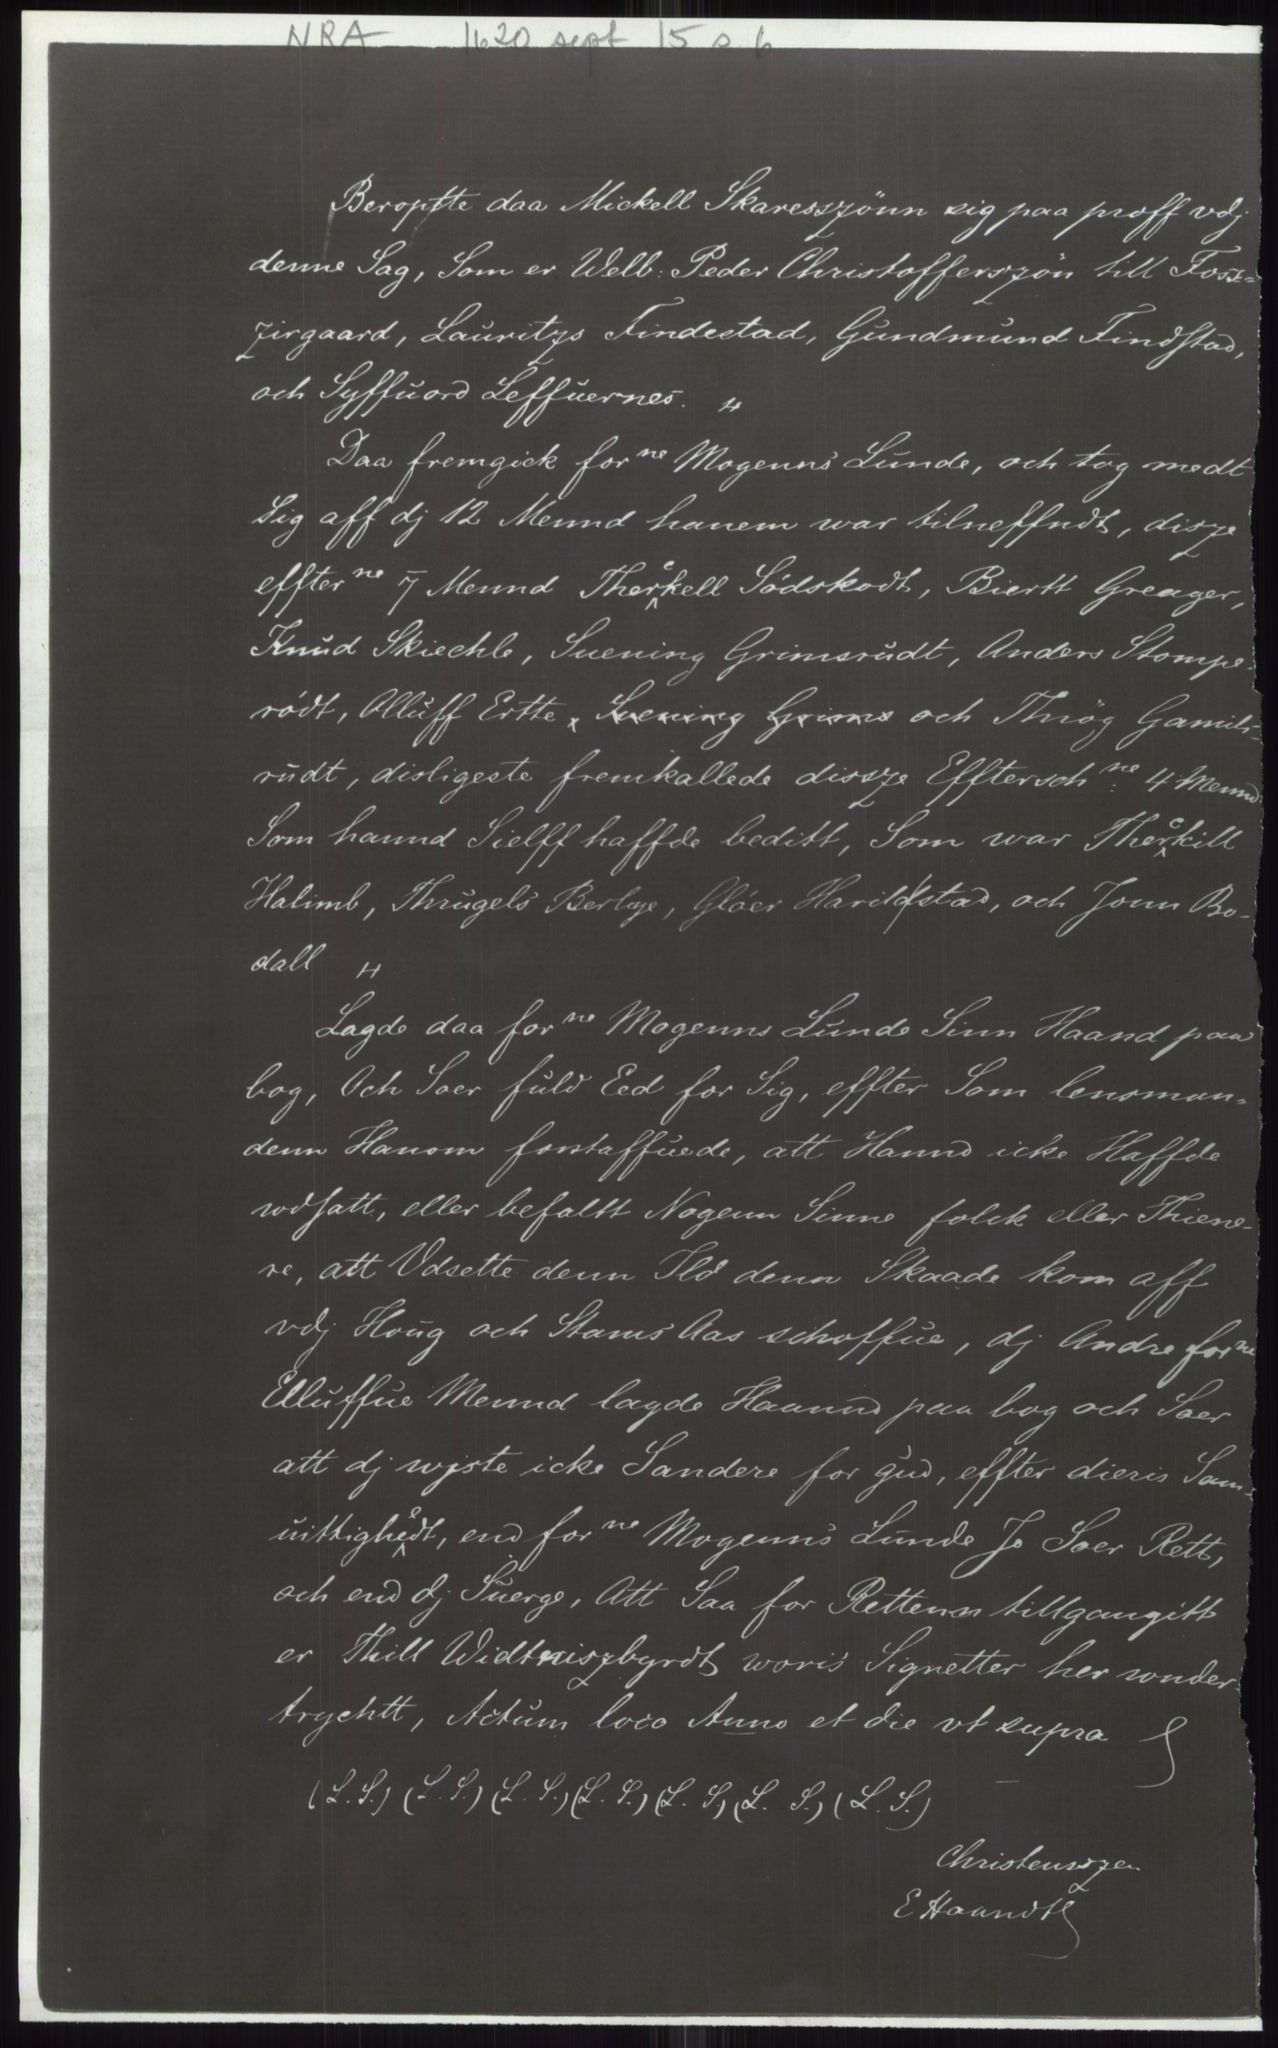 NRA 1620 sept 15 s. 6
Beropfte daa Mickell Skaresszönn sig paa proff vdj
denne Sag, Som er Welb: Peder Christofferszön till Fosz-
zirgaard, Lauritzs Findestad, Gundmund Findstad,
och Syffuord Leffuernes.
Daa fremgick for ne Mogenns Lunde, och tog medt
Sig aff dj 12 Mennd hanem war tilneffndt, disze
effter ne 7 Mennd Therkell Södskodt, Biertt Greager,
Knud Skiechle, Suening Grimsrudt, Anders Stompe-
rödt, Olluff Ertte, Suening Grims och Thrög Gamils-
rudt, disligeste fremkallede dissze Efftersch ne: 4 Mennd
Som hannd Sielff haffde beditt, Som war Therkill
Halimb, Thrugels Berbye, Glöer Harildstad, och Jonn Bo-
dall
Lagde daa for ne Mogenns Lunde Sinn Haand paa
bog, Och Soer fuld Eed for Sig, effter Som lensman-
denn Hanom forstaffuede, att Hannd icke Haffde
wdsatt, eller befaltt Nogenn Sinne folck eller Thiene-
re, att Vdsette denn Ild denn Skaade kom aff
vdj Houg och Stams Aas schoffue, dj Andre for ne
Elluffue Mennd lagde Haannd paa bog och Soer
att dj wiste icke Sandere for gud, effter dieris Sam-
uittighedt, end for ne Mogenns Lunde Jo Soer Rett,
och end dj Suerge, Att Saa for Rettenn tillgangitt
er Thill Widtniszbyrdt woris Signetter her wnder-
trychtt, Actum loco Anno et die vt supra
(L.S.) (L.S.) (L.S.) (L.S.) (L.S.) (L.S.) (L.S.)
Christenszen
E Haandt